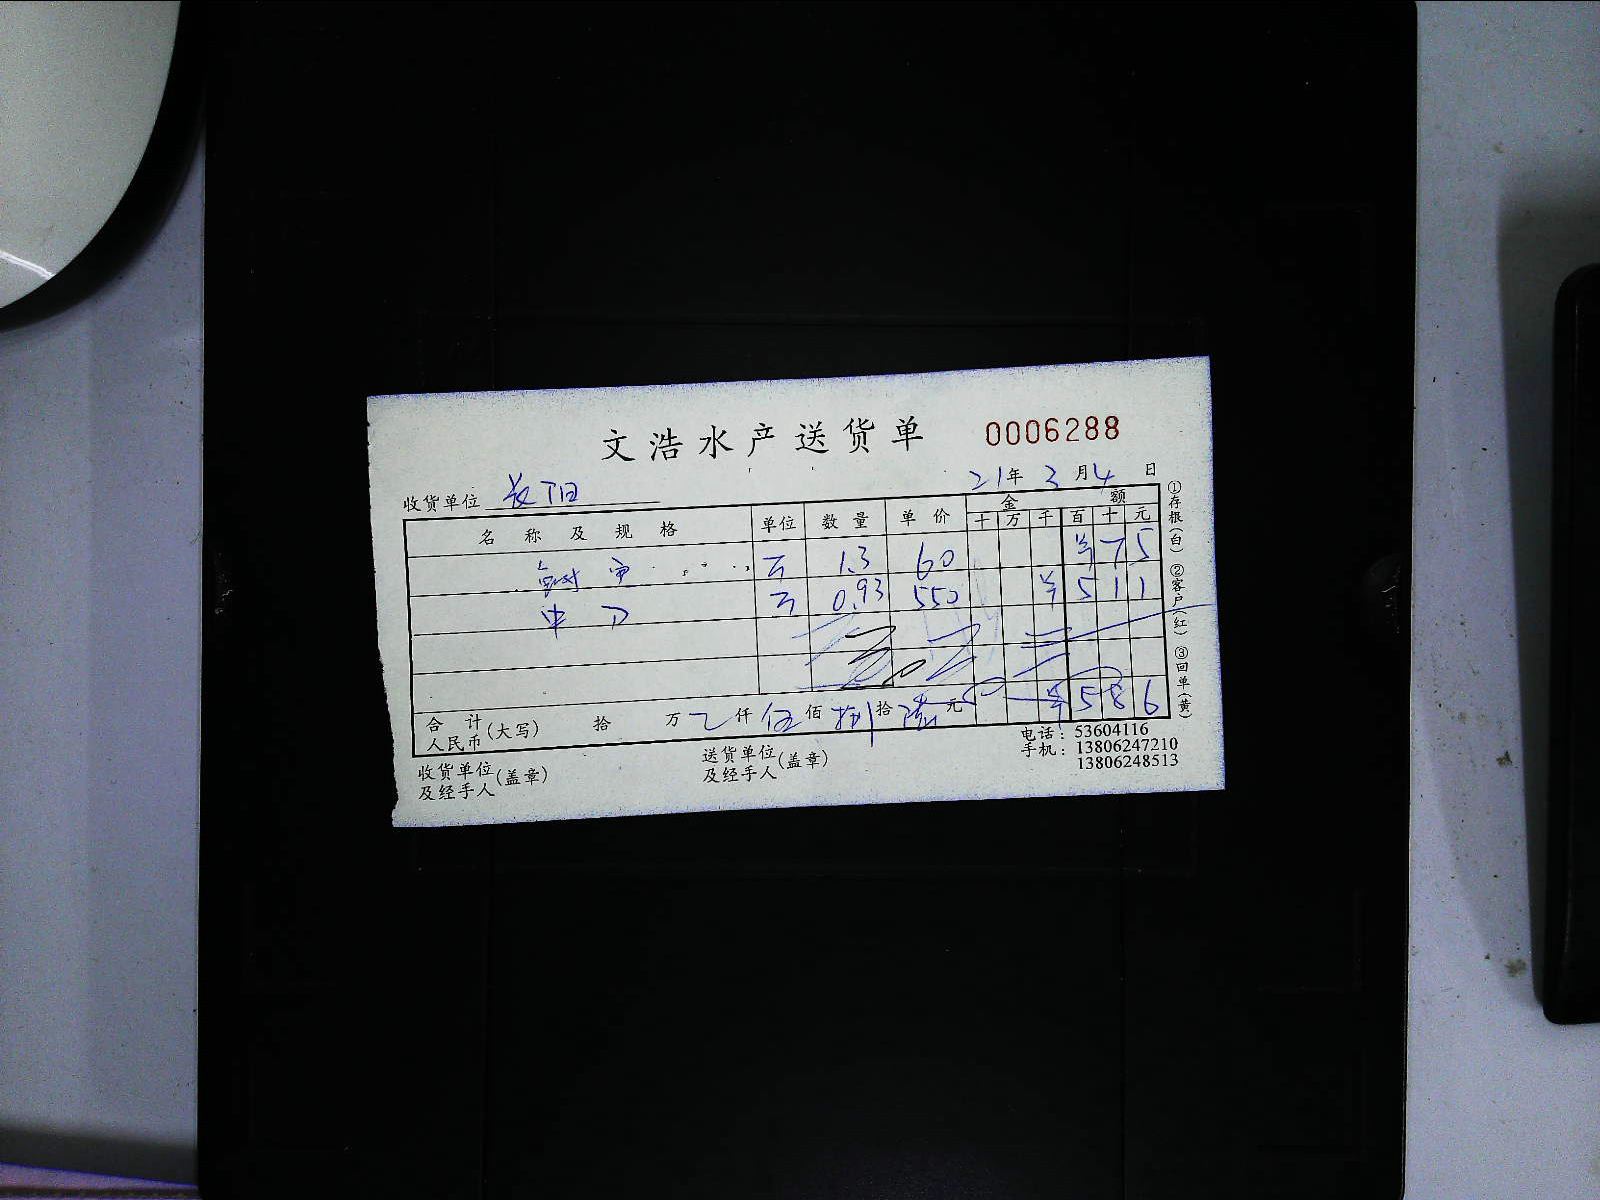 文浩水产送货单 0006288
收货单位 21年3月4日
名称及规格 单位 数量 单价 金额
十 万 千 百 十 元
1.3 60 ¥75
中刀 0.93 550 ¥511
合计人民币(大写) 拾 万 仟 伍佰捌拾陆元 ¥586
收货单位及经手人(盖章) 送货单位及经手人(盖章)
电话：53604116
手机：13806247210
13806248513
①存根(白) ②客户(红) ③回单(黄)